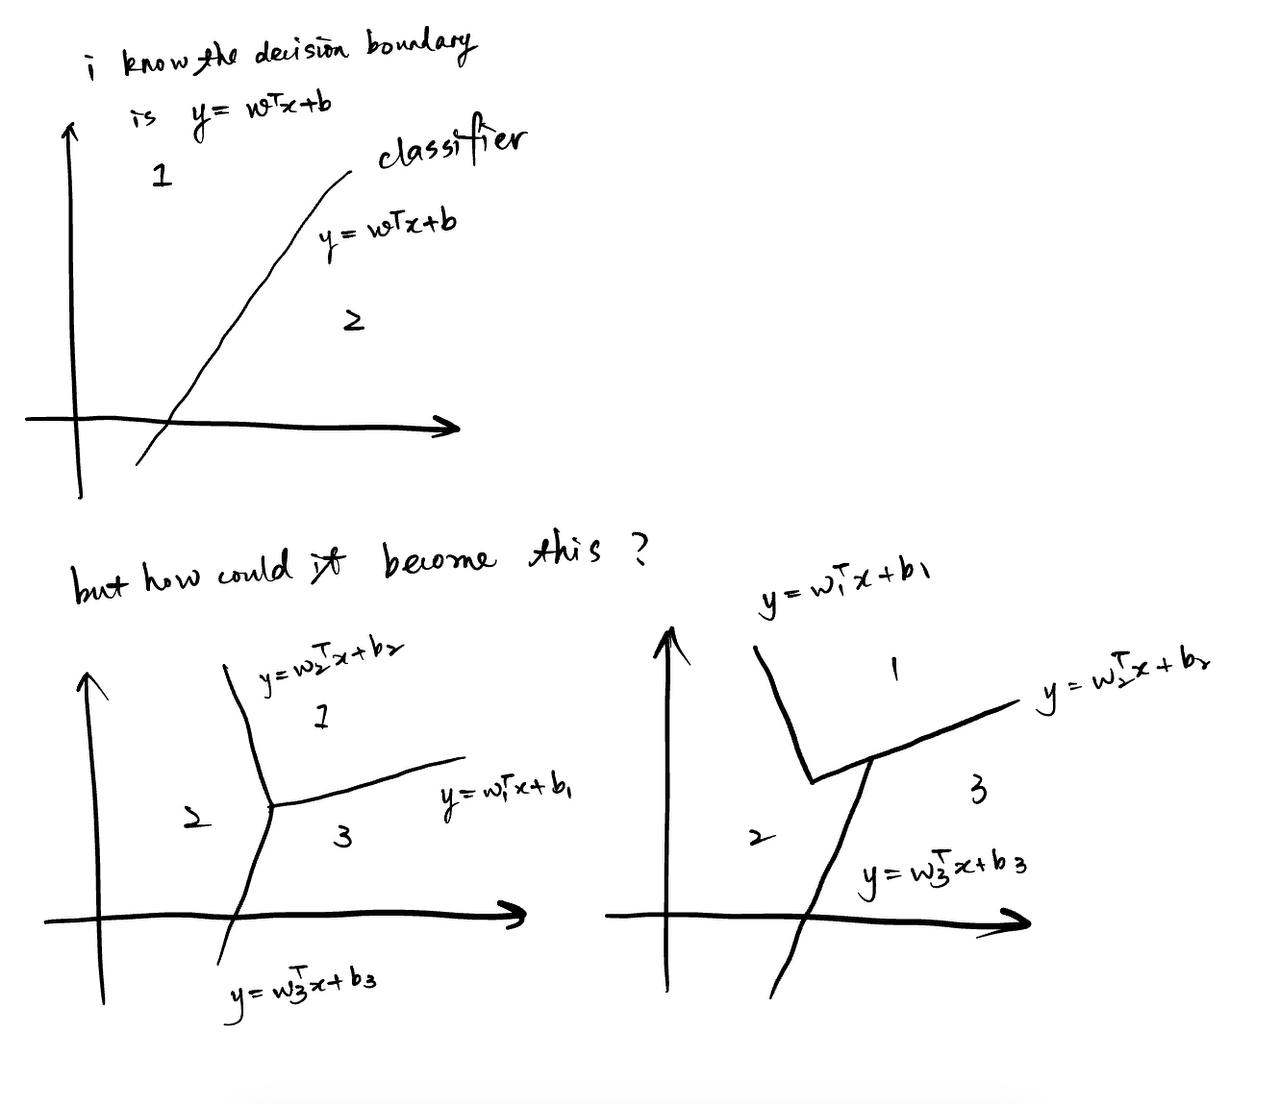 i know the decision boundary
is y = wᵀx+b
1
classifier
y = wᵀx+b
2
but how could it become this ?
y = w₂ᵀx+b₂
1
2
3
y = w₁ᵀx+b₁
y = w₃ᵀx+b3
y = w₁ᵀx+b₁
1
y = w₂ᵀx+b₂
2
3
y = w₃ᵀx+b3